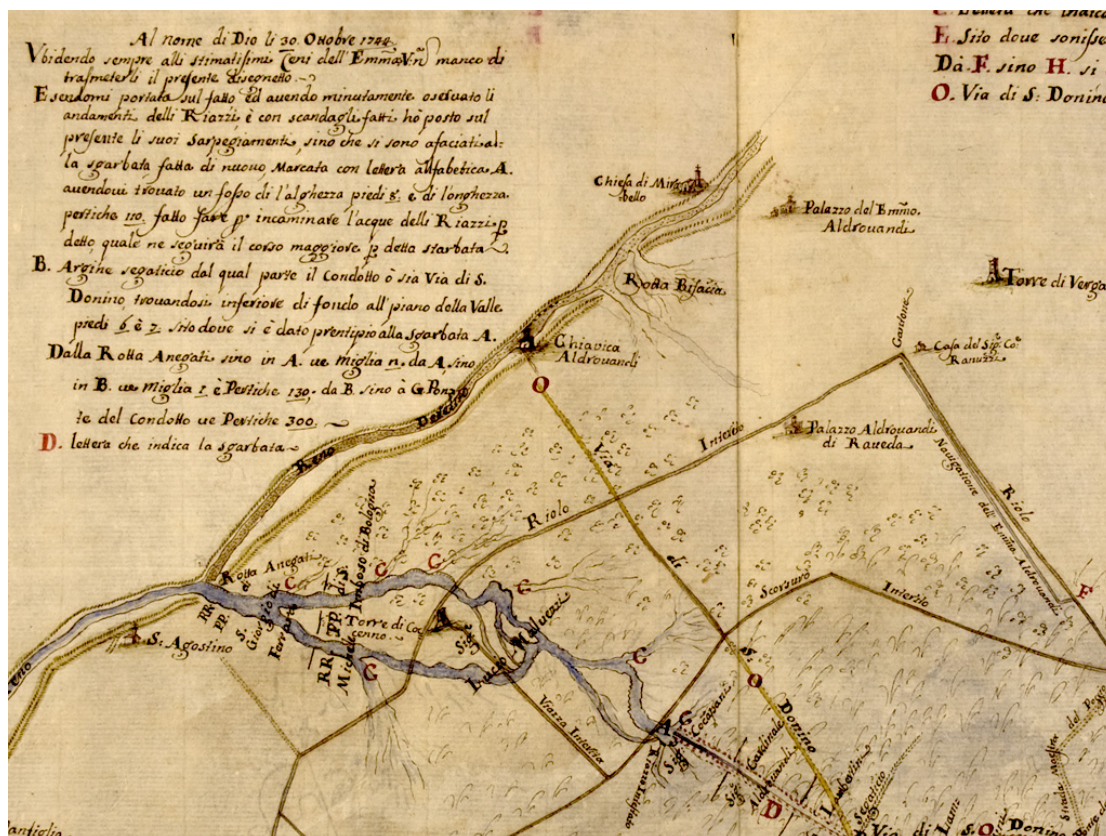 Al nome di Dio li 30. Ottobre 1744.
Vbidendo sempre alli stimatissimi Ceni dell' Emmo. Vn. manco di
trasmeterli il presente disegnetto.
Esendomi portata sul fatto ed avendo minutamente osservato li
andamenti delli Riazzi è con scandagli fatti ho posto sul
presente li suoi sarpegiamenti, sino che si sono afaciati al-
la sgarbata fatta di nuovo Marcata con lettera alfabetica A.
avendoui trovato un fosso di l'alghezza piedi 8. e di longhezza
pertiche 110. fatto fare p. incaminare l'acque delli Riazzi p
detto quale ne seguirà il corso maggiore p detta starbata
B. Argine segaticio dal qual parte il Condotto ò sia Via di S.
Donino trovandosi inferiore di fondo all' piano della Valle
piedi 6 è 7. sito dove si è dato prentipio alla Sgarbata A.
Dalla Rotta Anegati sino in A. ue Miglia n. da A, sino
in B. ue Miglia 1 è Pertiche 130. da B. sino à G Pon-
te del Condotto ue Pertiche 300.
D. lettera che indica la sgarbata
C. Lettera che indica
E. Sito dove
Dà F. sino H. si
O. Via di S. Donino
Chiesa di Mira
bello
Palazzo del Emmo.
Aldrouandi
Rotta Bisacia
Torre di Verga
A
Chiavica
Aldrouandi
O
Cantone
Casa del Sig. Co:
Ranuzzi
Palazzo Aldrouandi
di Raueda
Reno
Via di S. Donino
Riolo Interito
Riolo
Nauigatione dell' Emmo. Aldrouandi
F
Scorsuro Interito
Rotta Anegati
RR. PP. di S. Giorgio di Ferrara
RR. PP. di S. Michele in Bosco di Bologna
C
C
C
C
C
G
Torre di Co
cenno.
Sig.e Lucrezio Maluezzi
S. Agostino
Reno
Viazza Interita
A
G
O
D
I
Sig. Cardinale Aldrouandi
Segaticio
Via di S. O Donino